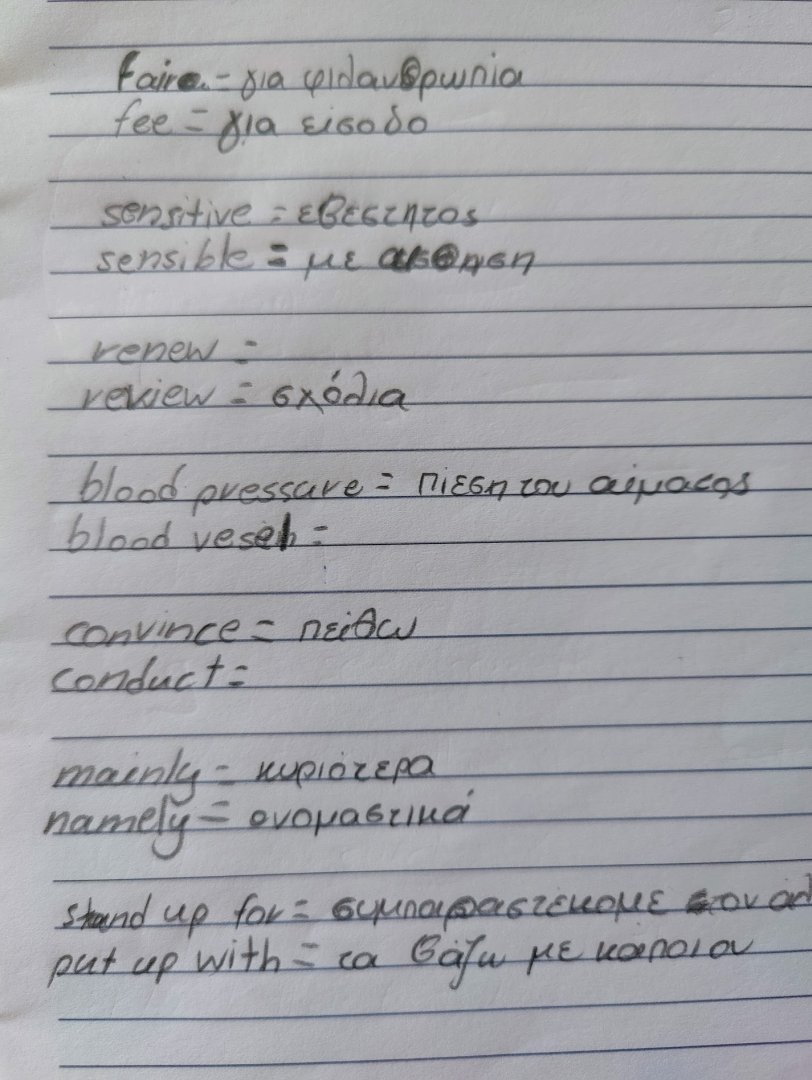 faire. - για φιλανθρωπία
fee = για εισοδο
sensitive = εβεστητος
sensible = με αισθηση
renew =
review = σχόλια
blood pressure = πιεση του αιματος
blood vesel =
convince = πείθω
conduct =
mainly = κυριότερα
namely = ονομαστικά
stand up for = συμπαραστεκομε στον αλ
put up with = τα βάζω με κάποιον